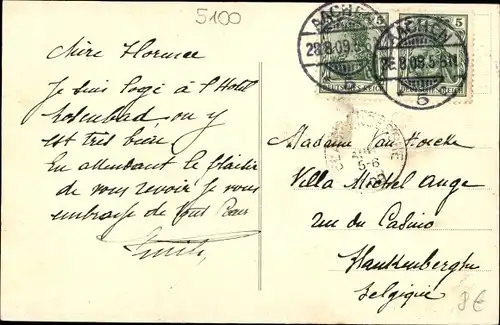 5100
AACHEN
28.8.09.5-6N
b
5
DEUTSCHES REICH
AACHEN
28.8.09.5-6N
b
5
DEUTSCHES REICH
5-6
Chère Florence
Je suis logé à l'Hotel
Rosenbad ou y
est très bien
En attendant le plaisir
de vous revoir je vous
embrasse de tout Cœur
Madame Van Hoecke
Villa Michel Ange
rue du Casino
Blankenberghe
Belgique
8€